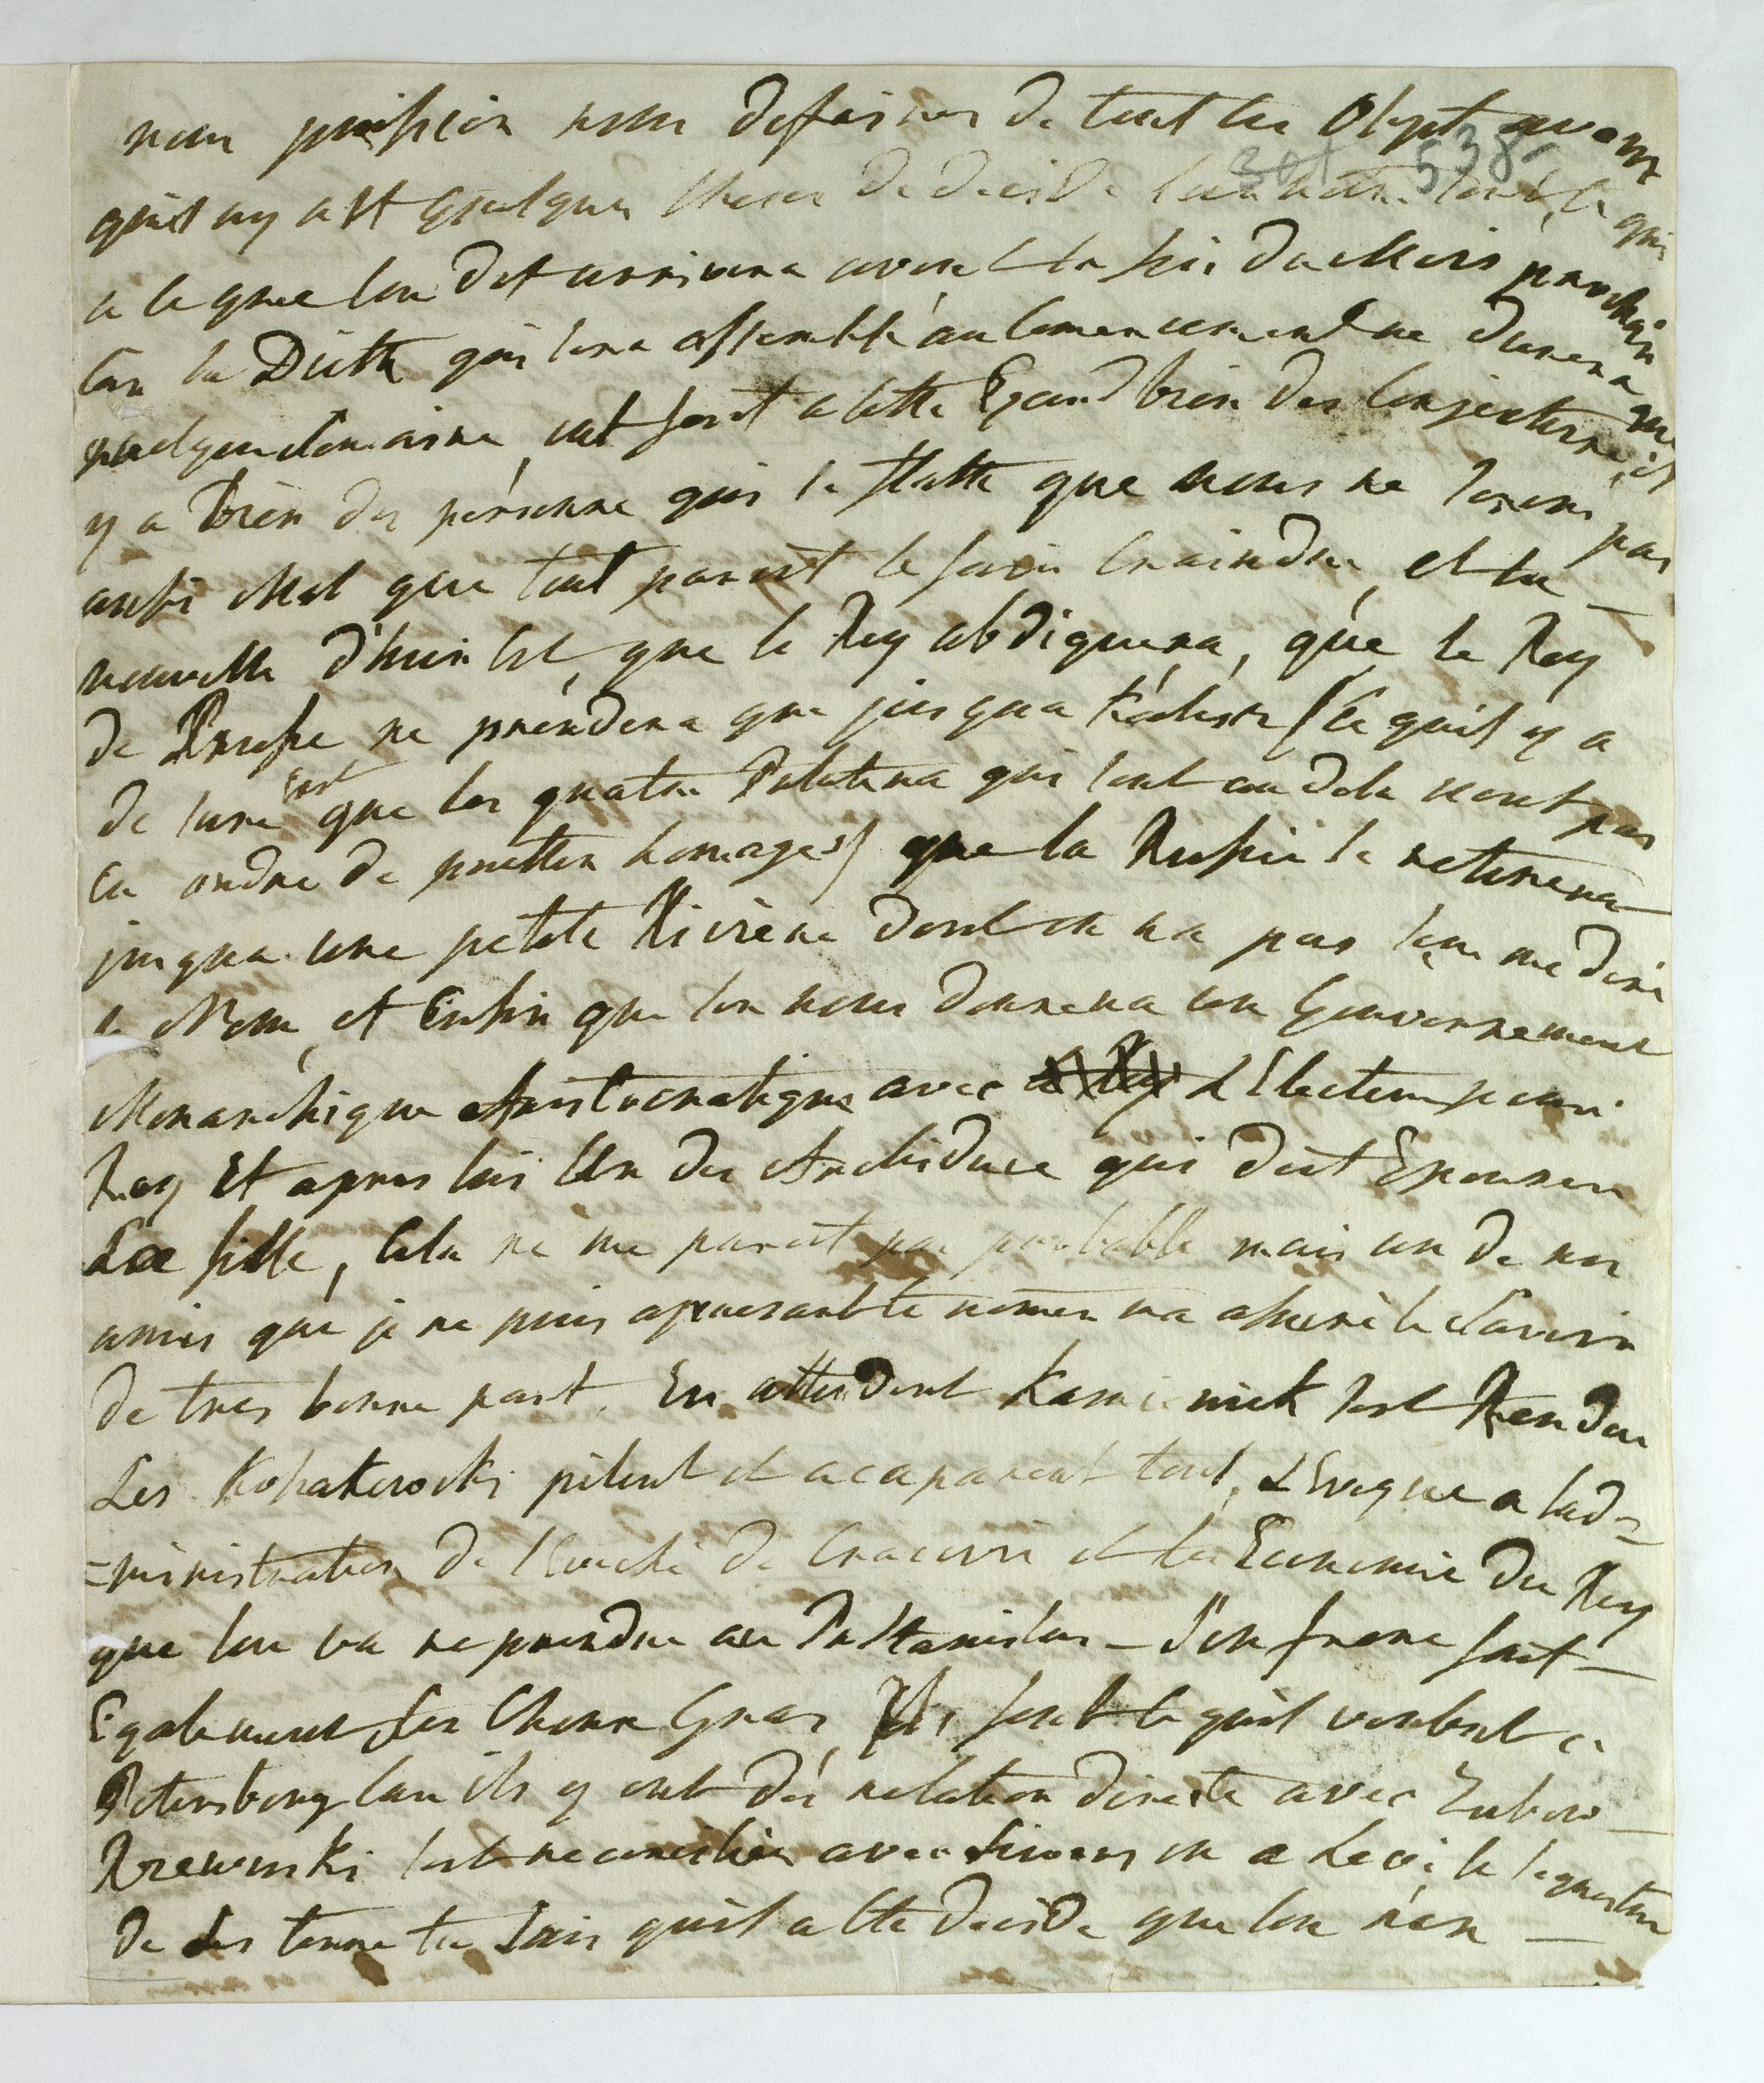 nous puission nous defaires de tout les Objet avant
quil ny aSt quelques choses de decide sur notre sort, ce qui
a ce que lon dit arrivera avant la fin du Mois prochain
Car la Diette qui sera assemblé au comencement ne durera que
quelque Semaine, ont fait a cette Egard bien des conjectures, il
y a bien des personne qui se flatte que nous ne serons pas
aussi Mal que tout paroit le faire craindre, et la
nouvelle d'huir est, que le Roy abdiquera, que le Roy
de Prusse ne prendera que jusqua (ce quil y a
de sure est que les quatre Palatina qui sont au dela nont pas
eu ordre de pretter homages) que la Russie se retirera
jusqua une petite Riviere dont on na pas seu me dire
le Nom, et Enfin que lon nous donnera un Gouvernement
Monarchique Aristocratique avec L'Electeur pour
Roy Et apres lui Un des Archiduce qui doit Epouser
Sa fille, Cela ne me paroit pas probable mais un de nos
amis que je ne puis apresent te nomer ma assuré le Savoir
de tres bonne part. En attendent Kaminiek est Rendu
Les Kossakowski pilent et acaparent tout, L'Eveque a lad=
=ministration de l'Eveché de Cracovie et la Economie du Roy
que lon va reprendre au Pr Stanislas - Son frere fait
Egalement ses Choux Gras, Ils font ce quil veulent a
Petersbourg car ils y ont des relation directe avec Zubow
Rzewuski est reconcilier avec Sievers on a Levé le sequestre
de Ses terre tu Sais quil a ete decide que lon nen